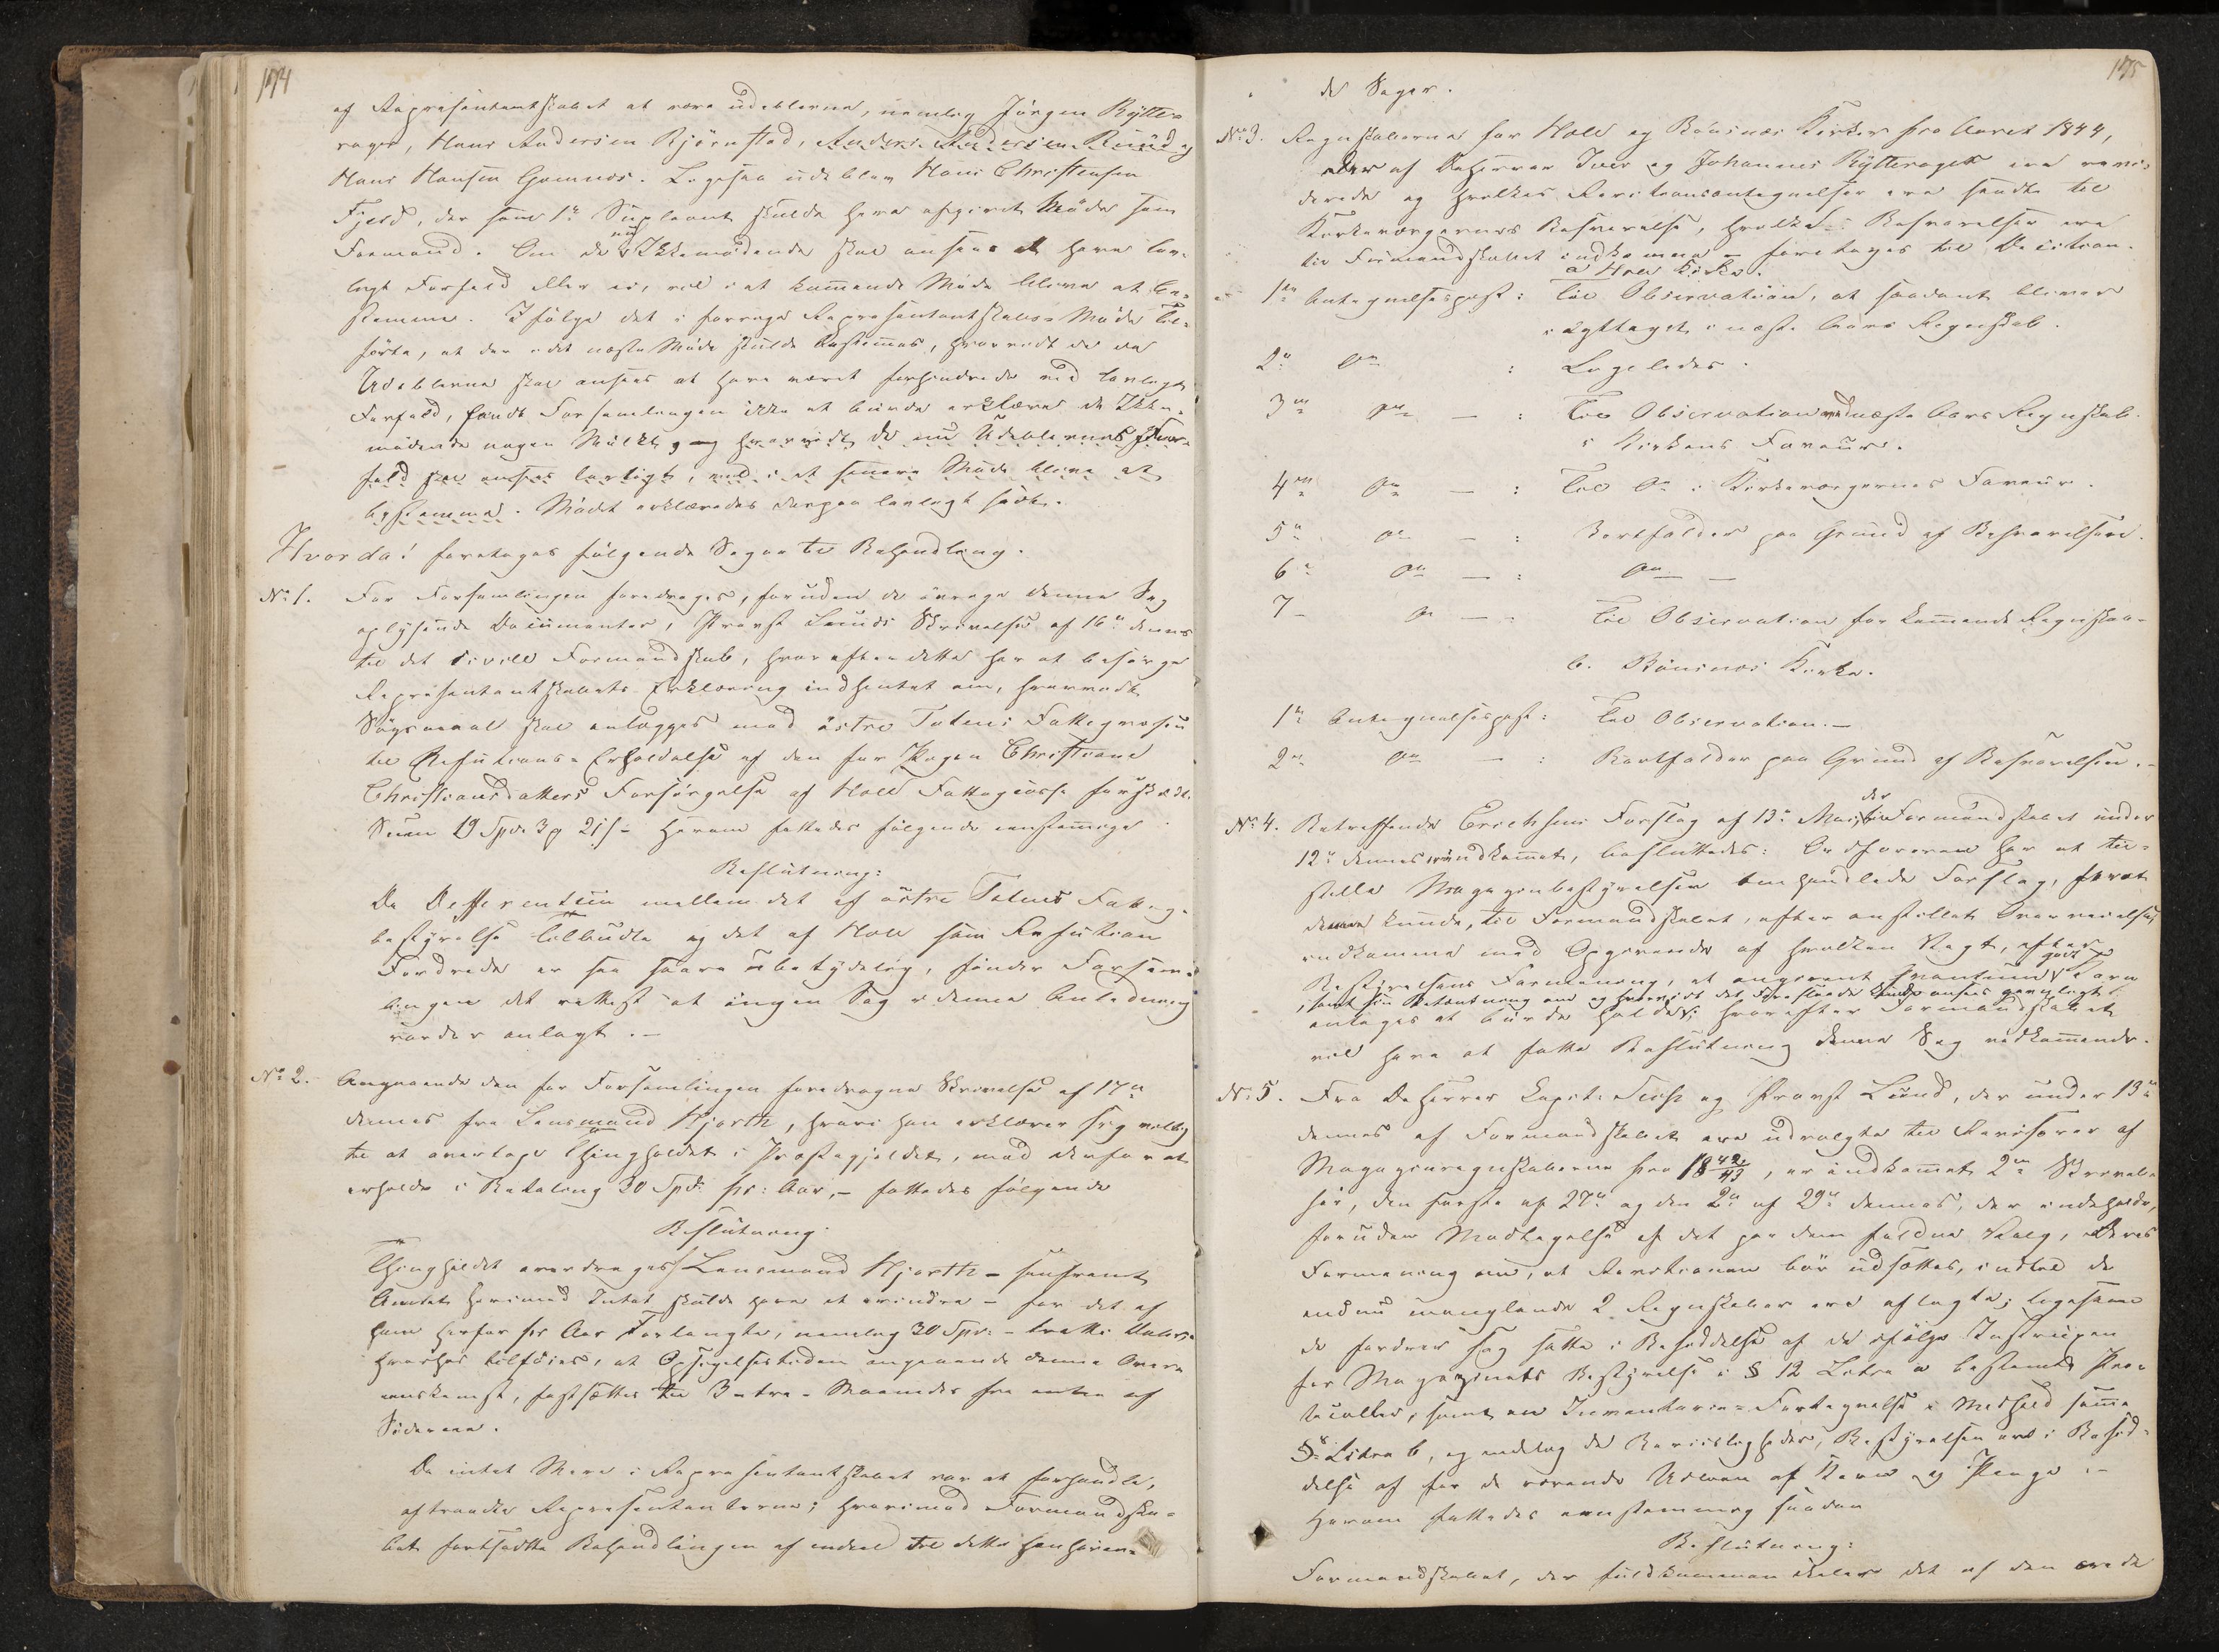 174
af Repræsentantskabet at være udeblevne, nemlig Jörgen Rÿtte-
rager, Hans Andersen Bjørnstad, Anders Andersen Rund og
Hans Hansen Gomnæs. Ligesaa udeblev Hans Christensen
Fjeld, der som 1te Supleant skulde have afgivet Möde som
Formand. Om de nu Ikkemödende skal ansees at have lov-
ligt Forfald eller ei, vil i et kommende Möde blive at be-
stemme. Ifölge det i forrige Repræsentantskabs-Möde Til-
förte, at der i det næste Möde skulde bestemmes, hvorvidt de da
Udeblevne skal ansees at have været forhindrede ved lovligt
Forfald, fandt Forsamlingen ikke at burde erklære de Ikke-
mödende nogen Mulkt, og hvorvidt de nu Udeblevnes For-
fald skal ansees lovligt, vil i et senere Möde blive at
bestemme. Mödet erklæredes derpaa lovligt sadt.
Hvorda! foretages fölgende Sager til Behandling.
No 1. For Forsamlingen foredroges, foruden de övrige denne Sag
oplysende Documenter, Provst Lunds Skrivelse af 16de dennes
til det civile Formandskab, hvorefter dette har at besörge
Repræsentantskabets Erklæring indhentet om, hvorvidt
Sögsmaal skal anlægges mod östre Totens Fattigvæsen
til Refutions-Erholdelse af den for Pigen Christiane
Christiansdatters Forsörgelse af Hole Fattigcasse forskudte
Sum 19 Spd. 3 ₰ 21 s - Herom fattedes fölgende eenstemmige
Beslutning:
Da Defferentsen mellem det af östre Totens Fattig-
bestyrelse tilbudte og det af Hole som Refution
Fordrede er saa saare ubetydelig, finder Forsam-
lingen det rettest at ingen Sag i denne Anledning
vorder anlagt. -
No 2. Angaaende den for Forsamlingen foredragne Skrivelse af 17de
dennes fra Lensmand Hjorth, hvori han erklærer sig villig
til at overtage Thingholdet i Præstegjeldet, mod derfor at
erholde i Betaling 30 Spd. pr: Aar, - fattedes fölgende
Beslutning
Thingholdet overdrages Lensmand Hjorth - saafremt
Amtet herimod Intet skulde have at erindre - for det af
ham herfor pr Aar Forlangte, nemlig 30 Spd: - tretti Daler:
hvorhos tilföies, at Opsigelsestiden angaaende denne Overe-
enskomst, fastsættes til 3 - tre - Maaneder fra enten af
Siderne.
Da intet Mere i Repræsentantskabet var at forhandle,
aftraadte Repræsentanterne; hvorimod Formandska-
bet fortsatte Behandlingen af endeel til dette henhören-
175
de Sager.
No 3. Regnskaberne for Hole og Bönsnæs Kirker for Aaret 1844,
der af DeHerrer Iver og Johannes Rÿtterager ere revi-
derede og hvilkes Revisionsantegnelser ere sendte til
Kirkeværgernes Besvarelse, hvilke Besvarelser ere
til Formandskabet indkomne - foretages til Decision.
a Hole Kirke.
1te Antegnelsespost: Til Observation, at saadant bliver
iagttaget i næste Aars Regnskab.
2de Do : Ligeledes.
3die Do - : Til Observation ved næste Aars Regnskab
i Kirkens Faveur.
4de Do - : Til Do i Kirkeværgernes Faveur.
5te Do - : Bortfalder paa Grund af Besvarelsen.
6te Do - : Do -
7 - Do - : Til Observation for kommende Regnskab-
b. Bönsnæs Kirke.
1te Antegnelsespost: Til Observation. -
2de Do - : Bortfalder paa Grund af Besvarelsen. -
No 4. Betreffende Erichsens Forslag af 13de Mai, der til Formandskabet under
12te dennes er indkommet, besluttedes: Ordföreren har at til-
stille Magazinbestyrelsen omhandlede Forslag, for at
denne kunde, til Formandskabet, efter anstillet Overveielse,
indkomme med Opgivende af hvilken Vægt, efter
Bestyrelsens Formening, et angivent Qvantum godt Korn
, samt sin Betænkning om og hvorvidt det Foreslaaede kunde ansees gavnligt
antages at burde holde; hvorefter Formandskabet
vil have at fatte Beslutning denne Sag vedkommende.
No 5. Fra DeHerrer Capt: Siose og Provst Lund, der under 13de
dennes af Formandskabet ere udvalgte til Revisorer af
Magazinregnskaberne for 1842/43, er indkommet 2de Skrivel-
ser, den förste af 27de og den 2de af 29de dennes, der indeholde,
foruden Modtagelse af det paa dem faldne Valg, Deres
Formening om, at Revisionen bör udsættes, indtil de
endnu manglende 2 Regnskaber ere aflagte; ligesom
de fordrer sig satte i Besiddelse af de ifölge Instruxen
for Magazinets Bestyrelse i § 12 Litra a bestemte Pro-
tocoller, samt en Inventarie-Fortegnelse i Medhold samme
§s Litra b, og endelig de Beviisligheder, Bestyrelsen ere i Besid-
delse af for de værende Udlaan af Korn og Penge. -
Herom fattedes eenstemmig saadan
Beslutning:
Formandskabet, der fuldkommen deler det af den ærede